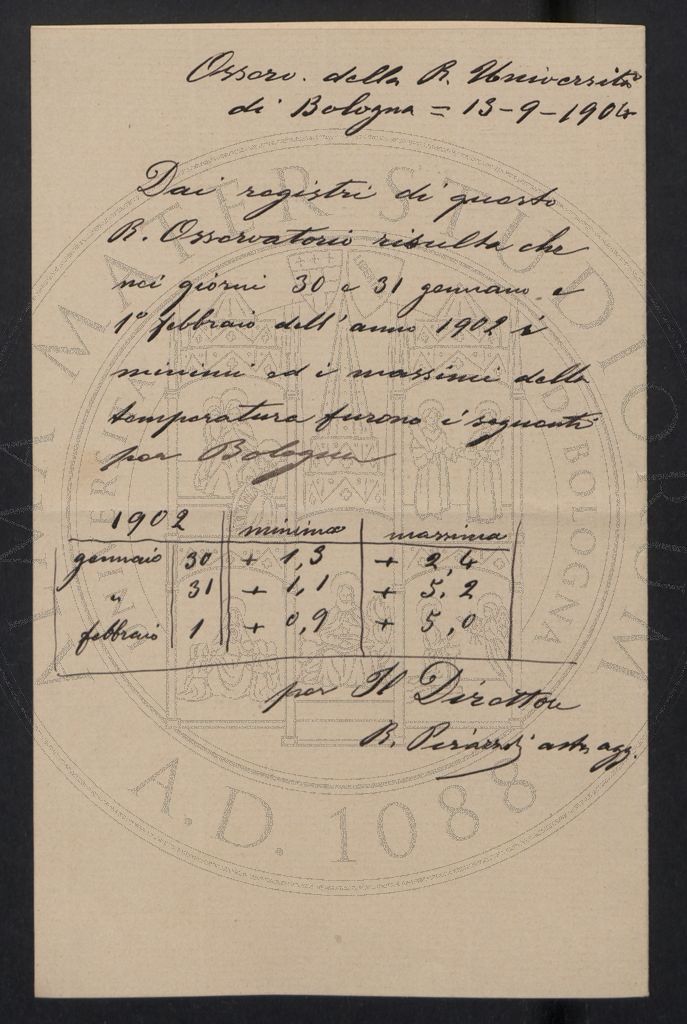 Osserv. della R. Università
di Bologna = 13-9-1904
Dai registri di questo
R. Osservatorio risulta che
nei giorni 30 e 31 gennaio e
1° febbraio dell'anno 1902 i
minimi ed i massimi della
temperatura furono i seguenti
per Bologna
1902 minima massima
gennaio 30 + 1,3 + 2,4
" 31 + 1,1 + 5,2
febbraio 1 + 0,9 + 5,0
per Il Direttore
R. Pirazzoli astr. agg.
ALMA MATER STUDIORUM
A.D. 1088